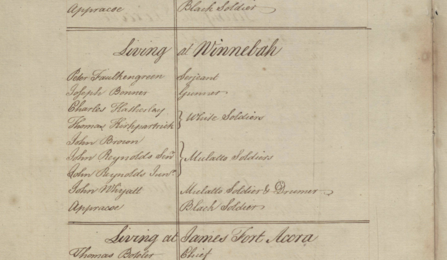 Appracoe Black Soldier
Living at Winnebah
Peter Faulkengreen Serjeant
Joseph Bonner Gunner
Charles Hatherley
Thomas Kirkpartrick } White Soldiers
John Brown
John Reynolds Senr } Mulatto Soldiers
John Reynolds Junr
John Whyatt Mulatto Soldier & Drumer
Appracoe Black Soldier
Living at James Fort Accra
Thomas Boteler Chief